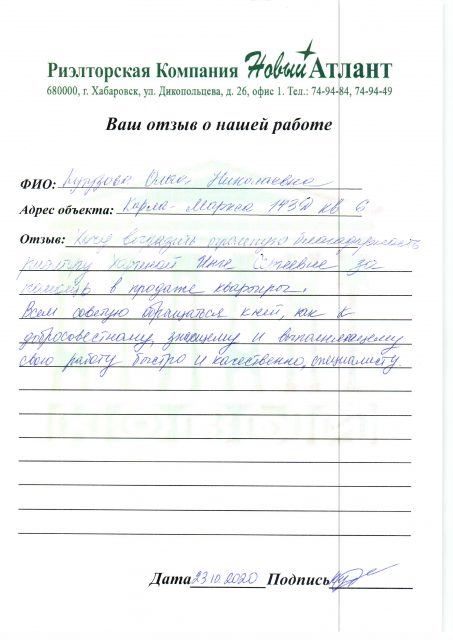 Риэлторская Компания Новый Атлант
680000, г. Хабаровск, ул. Дикопольцева, д. 26, офис 1. Тел.: 74-94-84, 74-94-49
Ваш отзыв о нашей работе
ФИО: Ольга Николаевна
Адрес объекта: Карла-Маркса 143Д кв 6
Отзыв: Хочу выразить огромную благодарность
риэлтору Инге Сергеевне за
помощь в продаже квартиры.
Всем советую обращаться к ней, как к
добросовестному, знающему и выполняющему
свою работу быстро и качественно, специалисту.
Дата 23.10.2020 Подпись